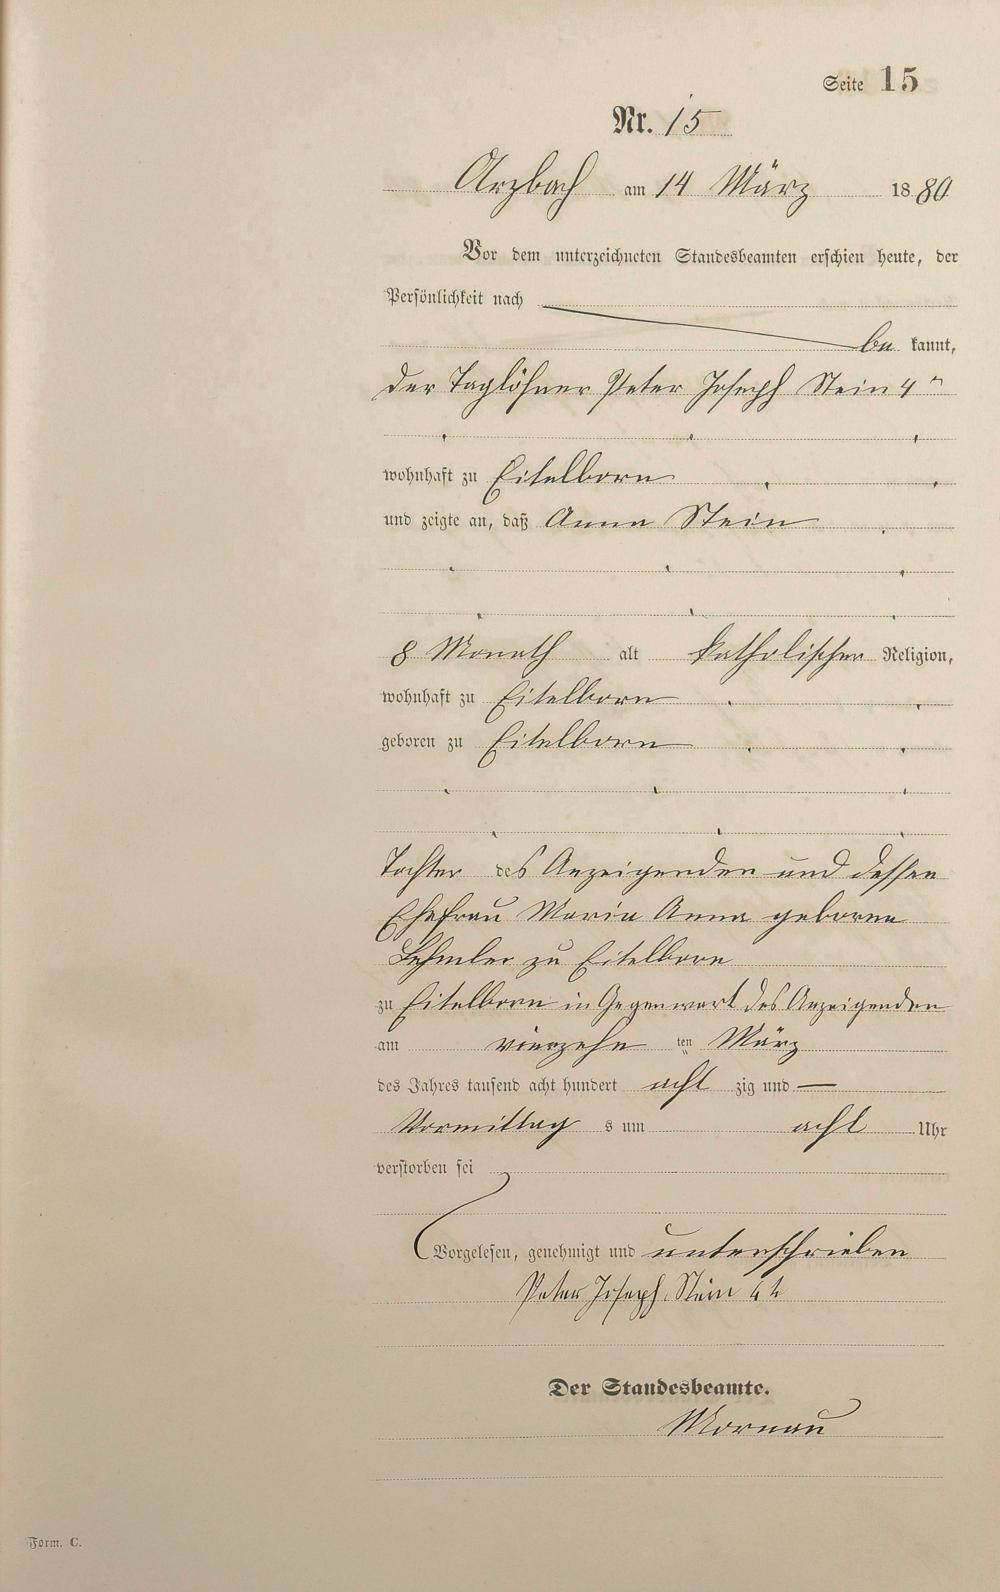 Seite 15
Nr. 15
Arzbach am 14 März 1880
Vor dem unterzeichneten Standesbeamten erschien heute, der
Persönlichkeit nach
be kannt,
der Taglöhner Peter Joseph Stein 4r
wohnhaft zu Eitelborn
und zeigte an, daß Anna Stein
8 Monath alt katholischer Religion,
wohnhaft zu Eitelborn
geboren zu Eitelborn
Tochter des Anzeigenden und dessen
Ehefrau Maria Anna geborene
Lehmler zu Eitelborn
zu Eitelborn in Gegenwart des Anzeigenden
am vierzehn ten März
des Jahres tausend acht hundert acht zig und —
Vormittag s um acht Uhr
verstorben sei
Vorgelesen, genehmigt und unterschrieben
Peter Joseph Stein 4t
Der Standesbeamte.
Mornau
Form. C.